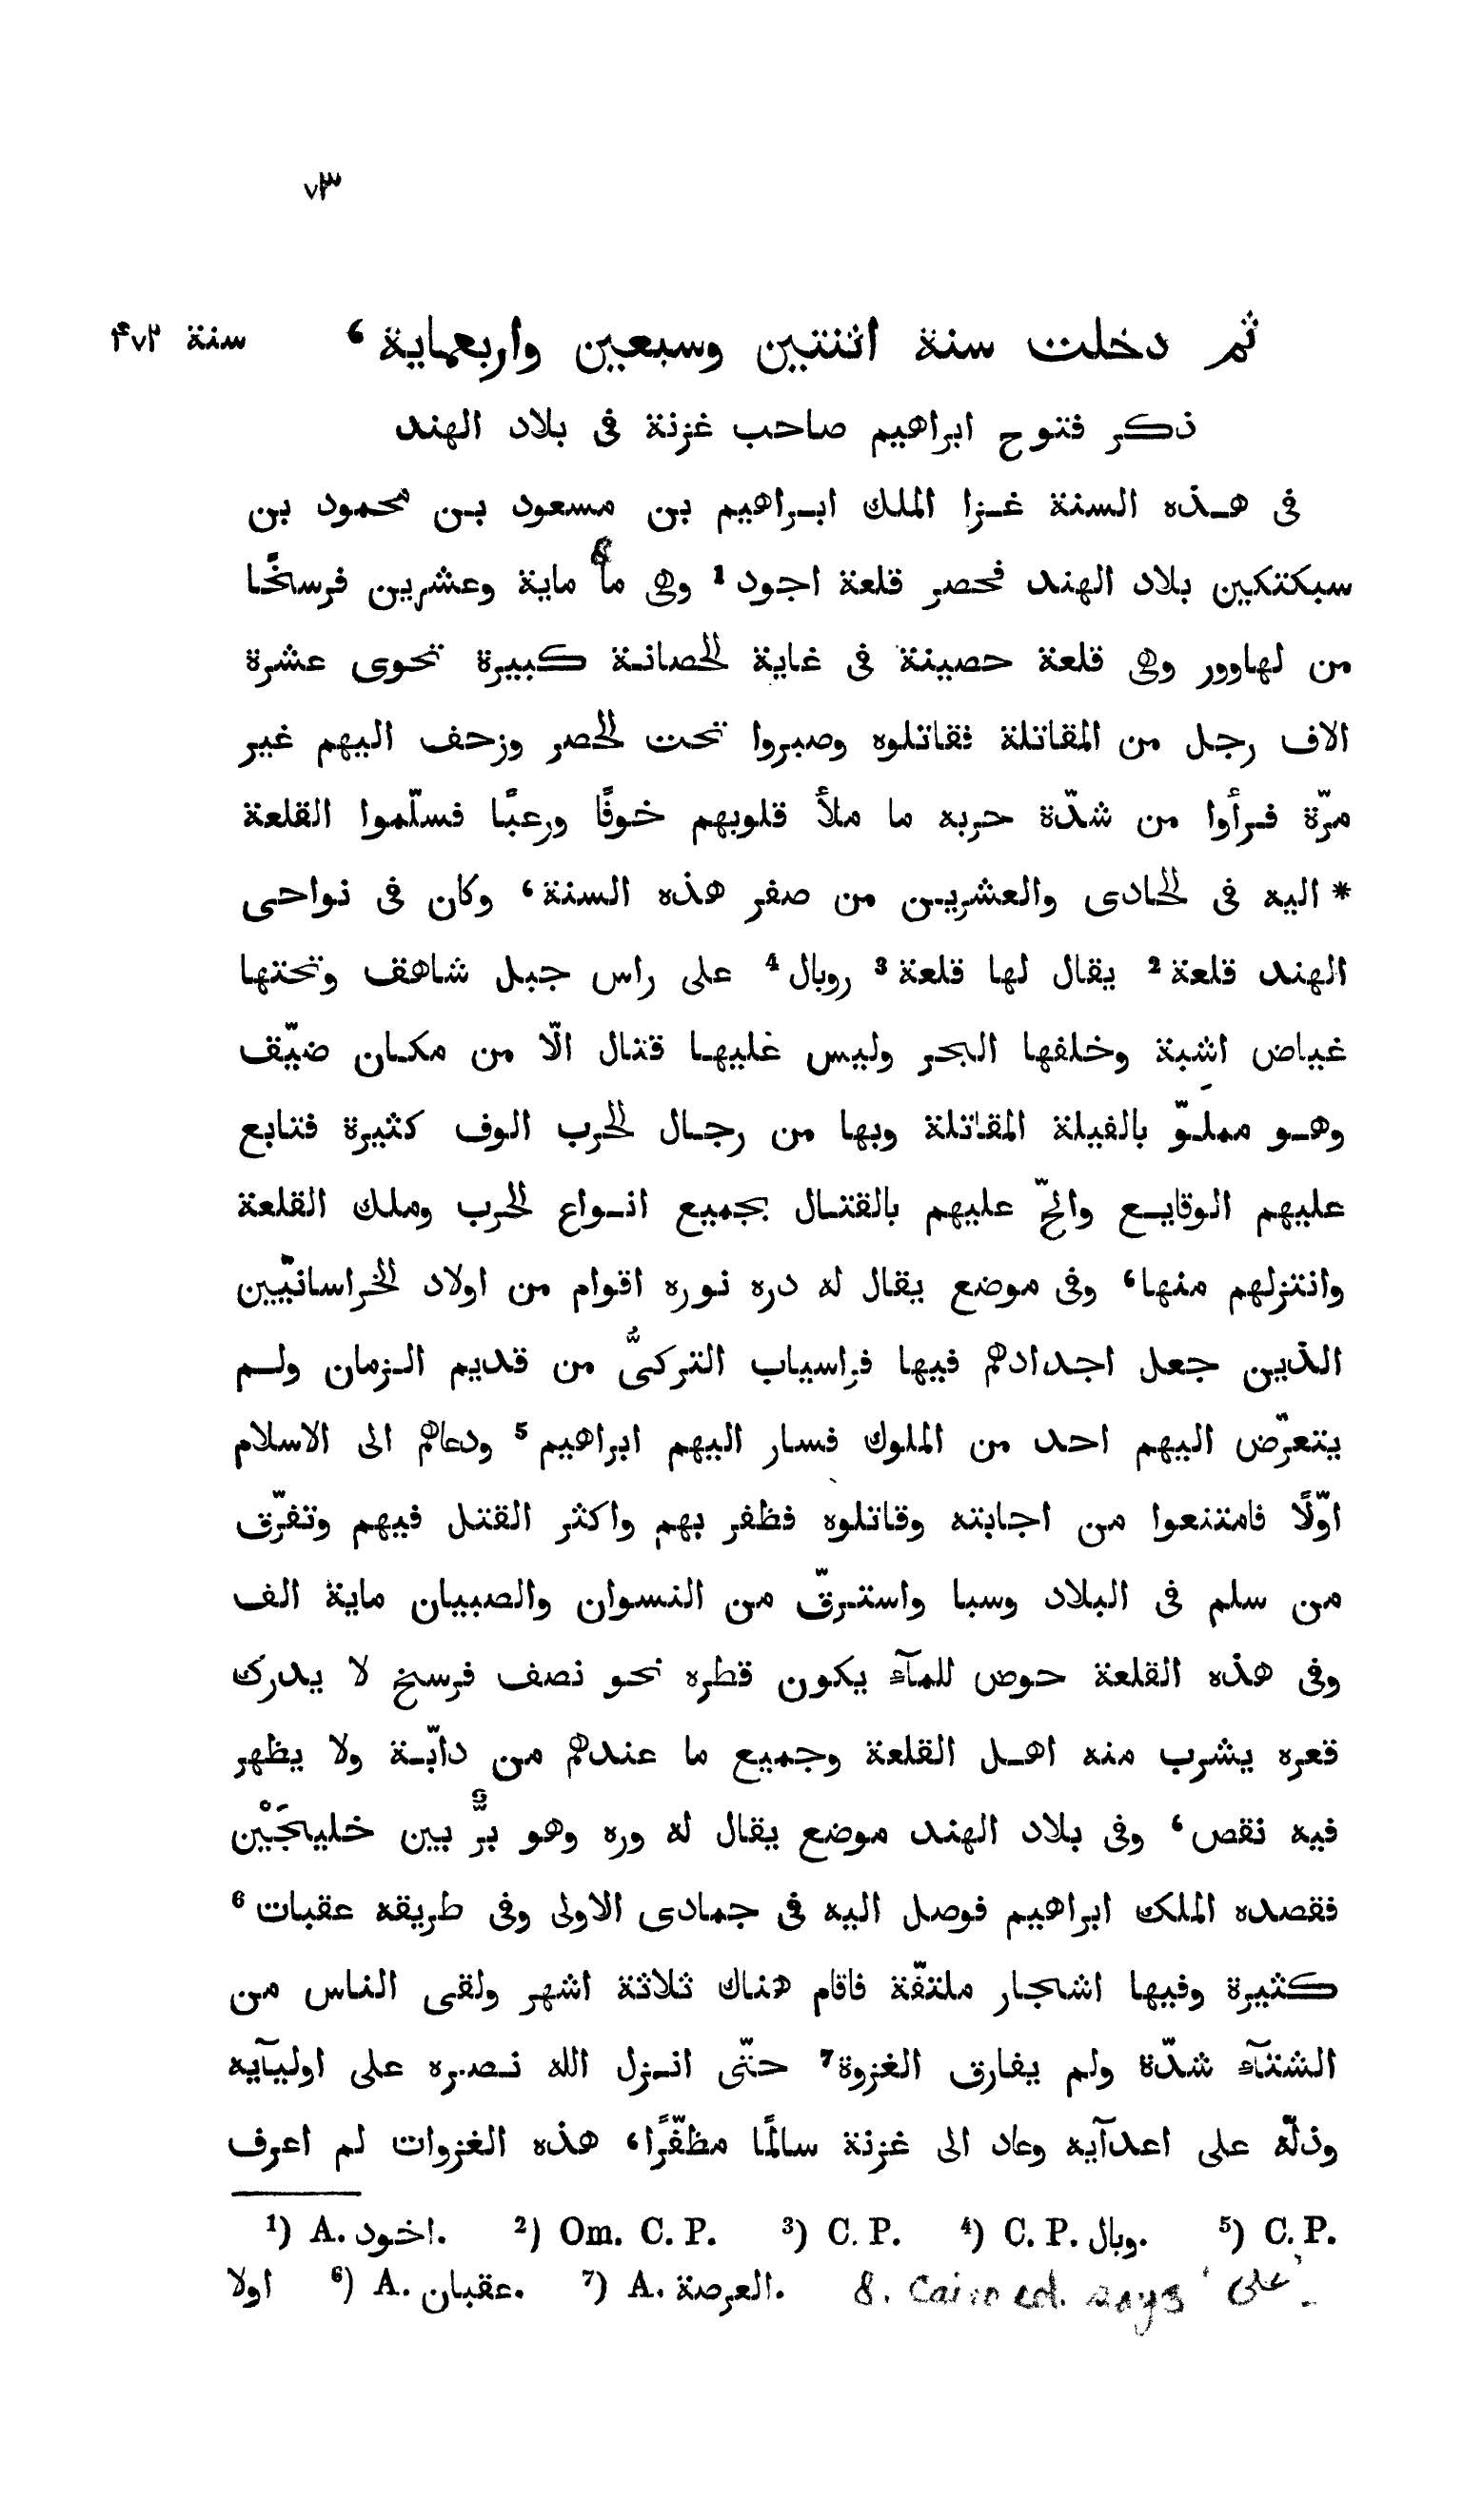 ٧٣
ثم دخلت سنة اثنتين وسبعين واربعماية ، سنة ۴٧٢
ذكر فتوح ابراهيم صاحب غزنة فى بلاد الهند
فى هذه السنة غزا الملك ابراهيم بن مسعود بن محمود بن
سبكتكين بلاد الهند فحصر قلعة اجود 1 وهى ما 8 ماية وعشرين فرسخًا
من لهاوور وهى قلعة حصينة فى غاية الحصانة كبيرة تحوى عشرة
الاف رجل من المقاتلة فقاتلوه وصبروا تحت الحصر وزحف اليهم غير
مرّة فرأوا من شدّة حربه ما ملأ قلوبهم خوفًا ورعبًا فسلّموا القلعة
* اليه فى الحادى والعشرين من صفر هذه السنة، وكان فى نواحى
الهند قلعة 2 يقال لها قلعة 3 روبال 4 على راس جبل شاهق وتحتها
غياض اشبة وخلفها البحر وليس غليها قتال الّا من مكان ضيّق
وهو مملوّ بالفيلة المقاتلة وبها من رجال الحرب الوف كثيرة فتابع
عليهم الوقايع والحّ عليهم بالقتال بجميع انواع الحرب وملك القلعة
وانتزلهم منها، وفى موضع يقال له دره نوره اقوام من اولاد الخراسانيّين
الذين جعل اجدادهم فيها فراسياب التركىُّ من قديم الزمان ولم
يتعرّض اليهم احد من الملوك فسار اليهم ابراهيم 5 ودعاهم الى الاسلام
اوّلًا فامتنعوا من اجابته وقاتلوه فظفر بهم واكثر القتل فيهم وتفرّق
من سلم فى البلاد وسبا واسترقّ من النسوان والصبيان ماية الف
وفى هذه القلعة حوض للمآء يكون قطره نحو نصف فرسخ لا يدرك
قعره يشرب منه اهل القلعة وجميع ما عندهم من دابّة ولا يظهر
فيه نقص ، وفى بلاد الهند موضع يقال له وره وهو برٌّ بين خليجَيْن
فقصده الملك ابراهيم فوصل اليه فى جمادى الاولى وفى طريقه عقبات 6
كثيرة وفيها اشجار ملتفّة فاقام هناك ثلاثة اشهر ولقى الناس من
الشتآء شدّة ولم يفارق الغزوة 7 حتّى انزل الله نصره على اوليآيه
وذلّه على اعدآيه وعاد الى غزنة سالمًا مظفّرًا، هذه الغزوات لم اعرف
1) A. اخود. 2) Om. C. P. 3) C. P. 4) C. P. وبال. 5) C. P.
اولا 6) A. عقبان. 7) A. العرصة. 8. Cairo ed. says 'على'